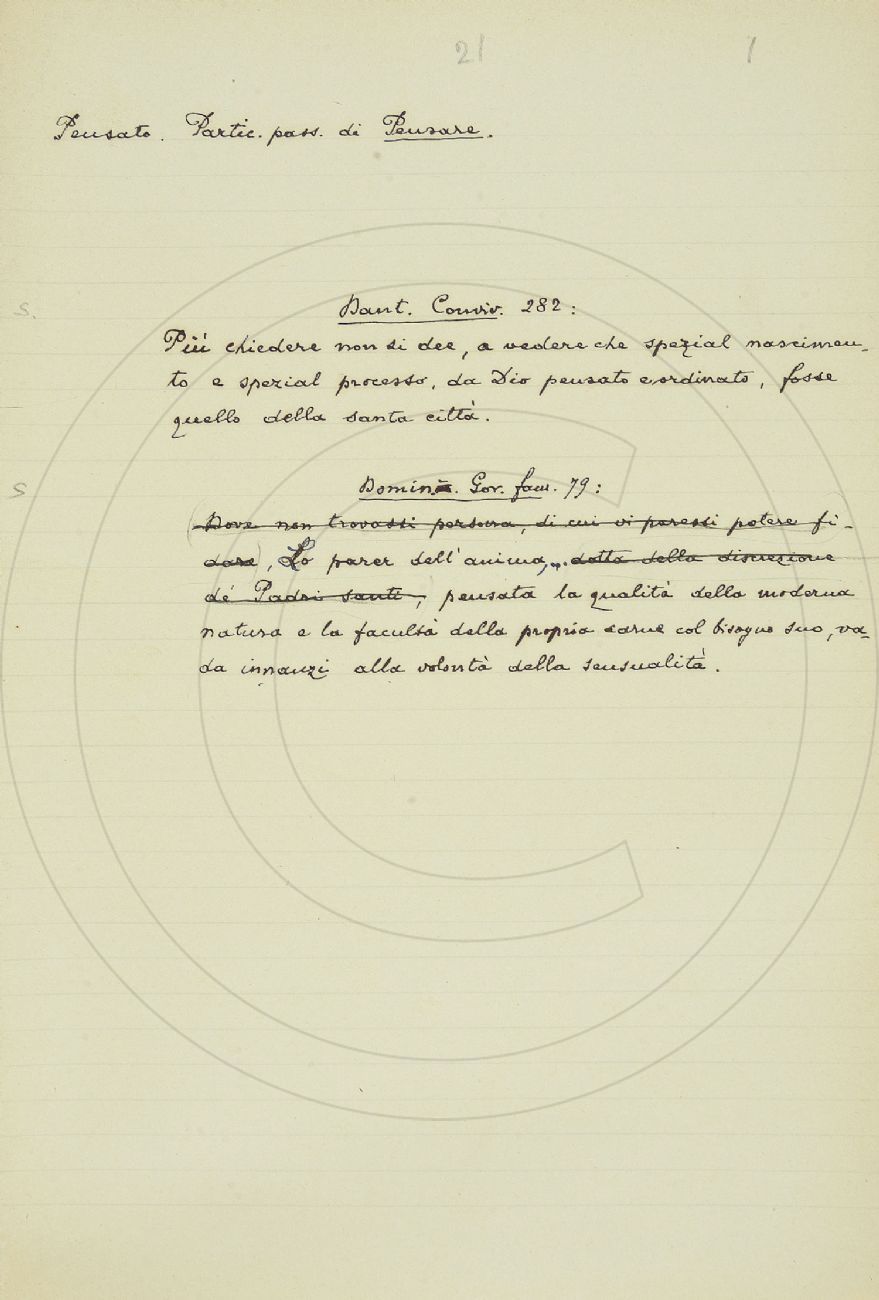 21 1
Pensato. Partic. pass. di Pensare.
S. Dant. Conviv. 282:
Più chiedere non si dee, a vedere che spezial nascimen-
to e spezial processo, da Dio pensato e ordinato, fosse
quello della santa città.
S Domin. Gov. fam. 79:
(Dove non trovassi persona, di cui vi paressi potere fi-
dare), Lo parer dell'anima, ... dotta della discrezione
de' Padri santi, pensata la qualità della moderna
natura e la facultà della propria carne col bisogno suo, va-
da innanzi alla volontà della sensualità.